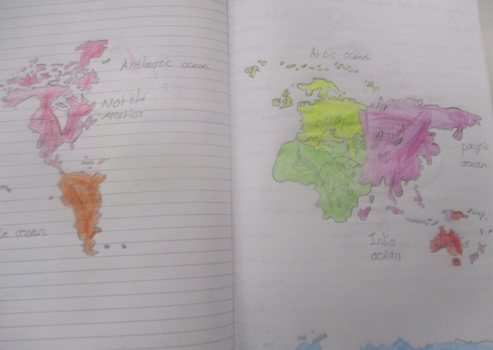 Antlantic ocean
North
America
ic ocean
Artic ocean
pacific
ocean
India
ocean